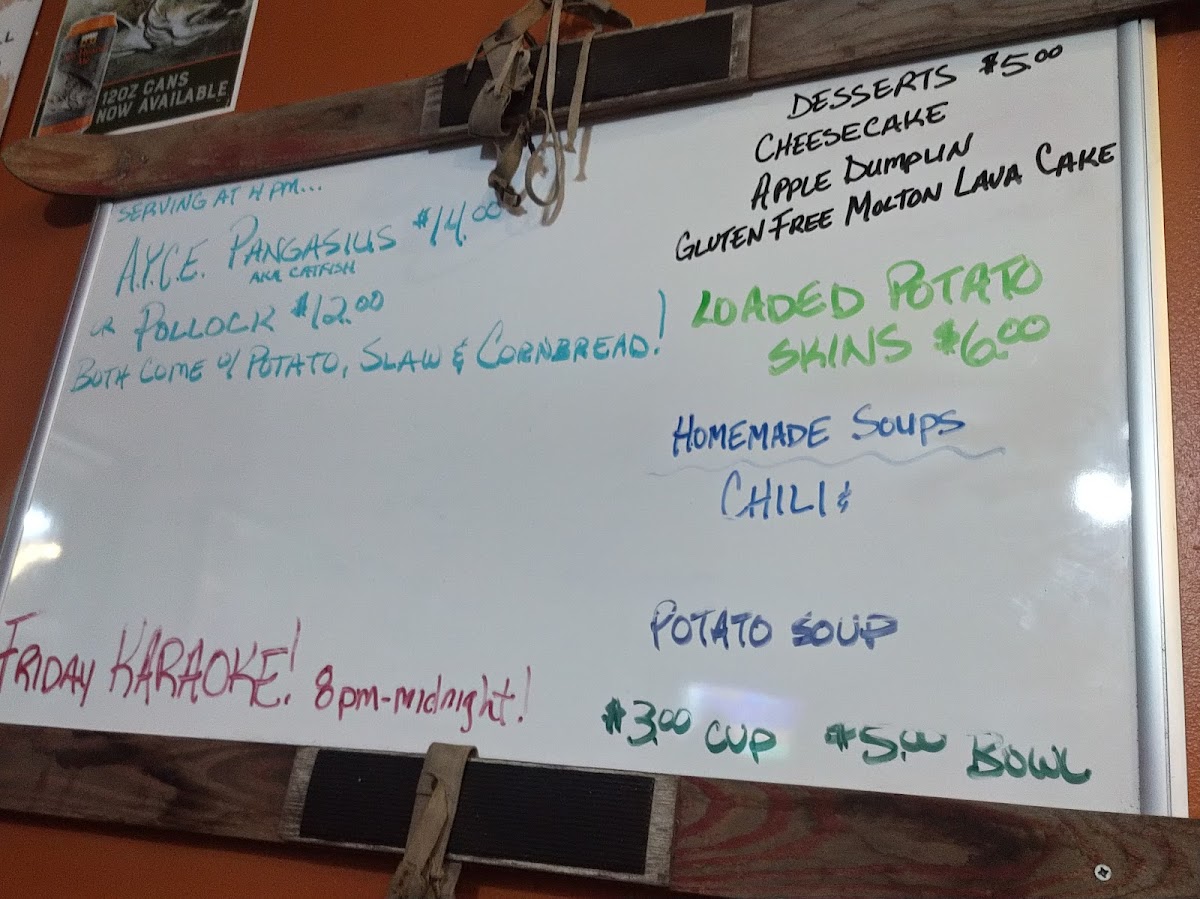 12OZ CANS
NOW AVAILABLE
SERVING AT 4 PM...
A.Y.C.E. PANGASIUS $14.00
AKA CATFISH
OR POLLOCK $12.00
BOTH COME W/ POTATO, SLAW & CORNBREAD!
DESSERTS $5.00
CHEESECAKE
APPLE DUMPLIN
GLUTEN FREE MOLTON LAVA CAKE
LOADED POTATO
SKINS $6.00
HOMEMADE SOUPS
CHILI &
POTATO SOUP
$3.00 CUP $5.00 BOWL
FRIDAY KARAOKE! 8pm-midnight!